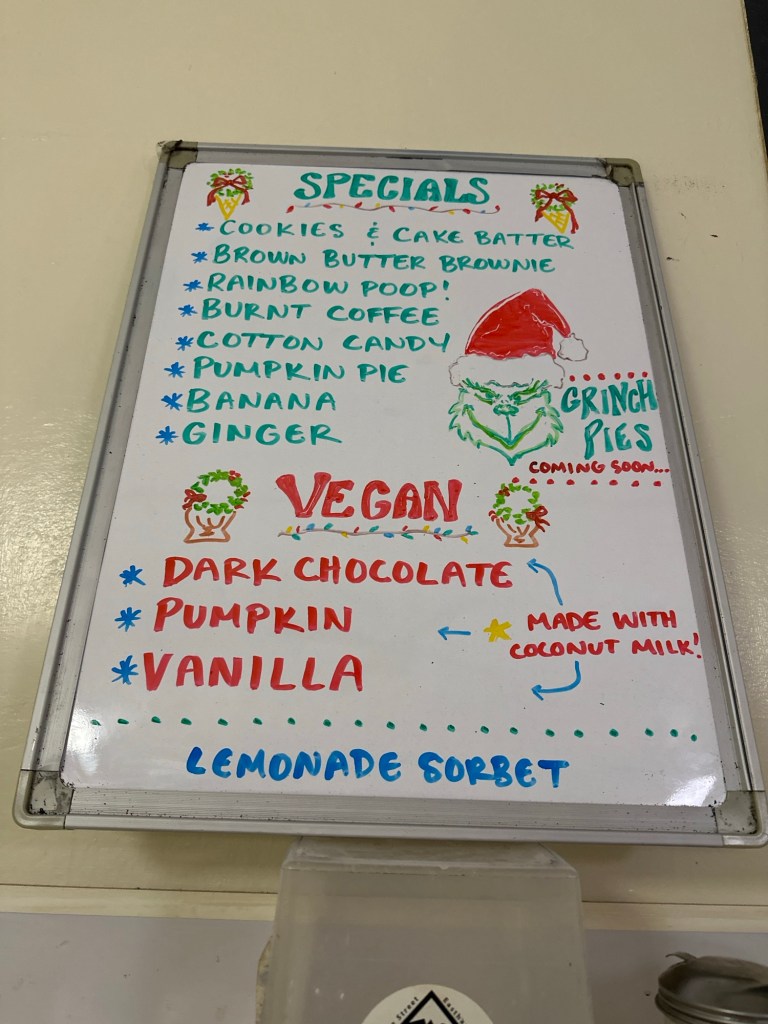 SPECIALS
* COOKIES & CAKE BATTER
* BROWN BUTTER BROWNIE
* RAINBOW POOP!
* BURNT COFFEE
* COTTON CANDY
* PUMPKIN PIE
* BANANA
* GINGER
GRINCH
PIES
COMING SOON...
VEGAN
* DARK CHOCOLATE
* PUMPKIN
* VANILLA
MADE WITH
COCONUT MILK!
LEMONADE SORBET
Street